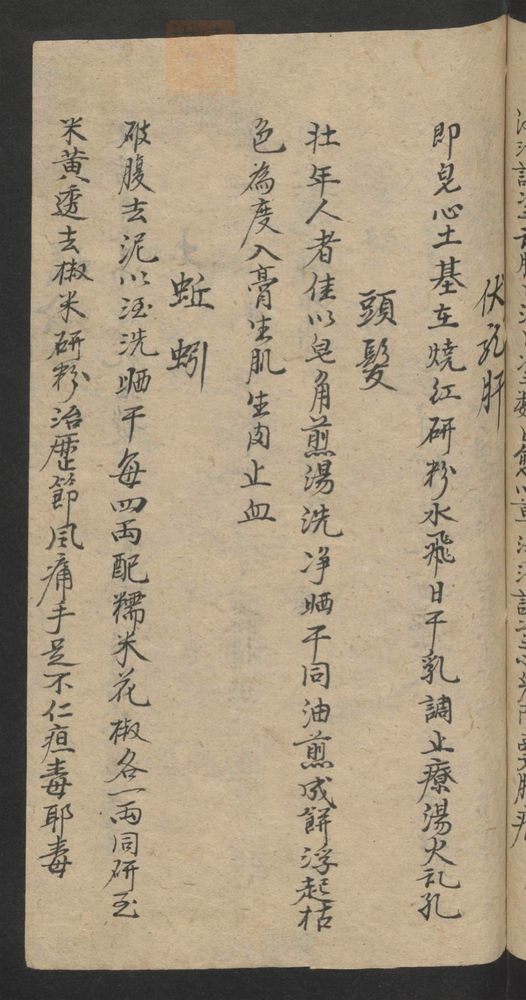 伏死肝
即皃心土基在燒红研粉水飛日干乳調止療湯火乱孔
頭髮
壮年人者佳以皂角煎湯洗净晒干同油煎成餅浮起枯
色為度入膏生肌生肉止血
蚯蚓
破腹去泥以汪洗晒干每四兩配糯米花椒各一兩同研至
米黃透去椒米研粉治歷節風痛手足不仁疸毒耶毒